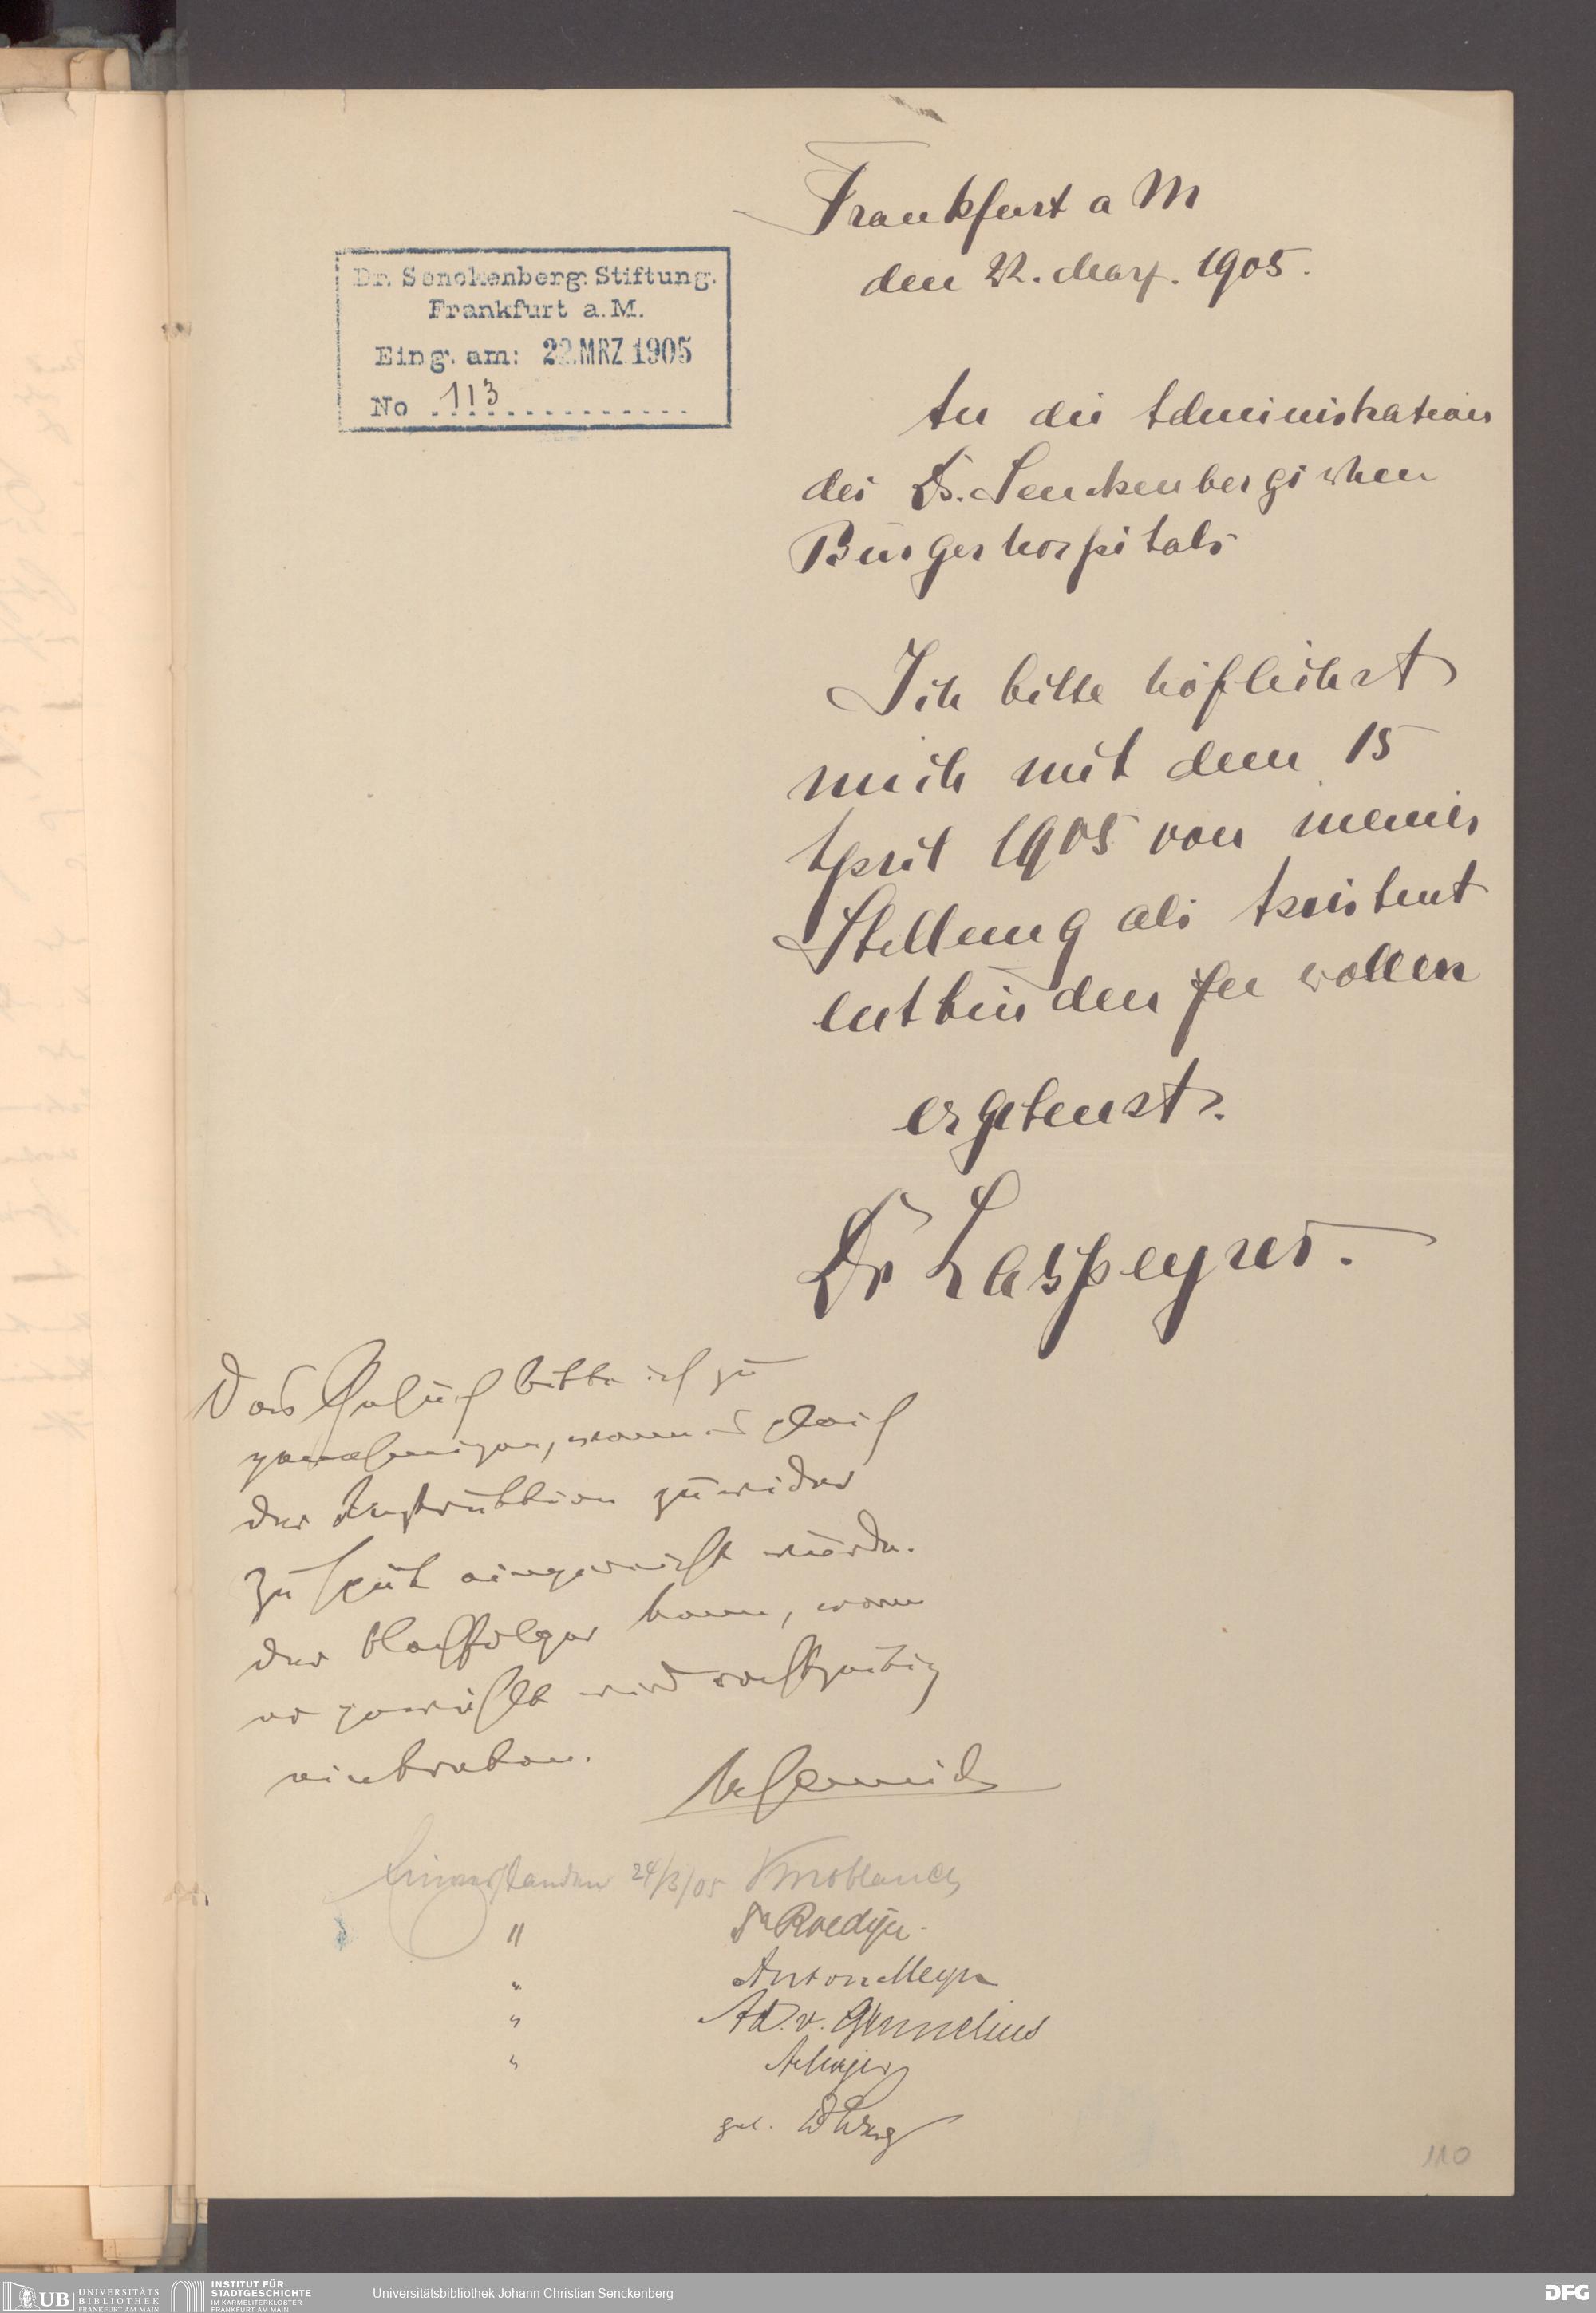 Frankfurt a M
den 22. März. 1905.
Dr. Senckenberg. Stiftung.
Frankfurt a. M.
Eing. am: 22.MRZ.1905
No 113
An die Administration
des Dr. Senckenbergischen
Bürgerhospitals
Ich bitte höflichst
mich mit dem 15
April 1905 von meiner
Stellung als Assistent
entbinden zu wollen
ergebenst.
Dr Laspeyres.
Das Gesuch bitte ich zu
genehmigen, wenn es gleich
der Instruktion zuwider
zu spät eingereicht wurde.
Der Nachfolger kann, wenn
er gewählt wird rechtzeitig
eintreten.
Einverstanden 24/3/05 Knoblauch
" Dr Roediger
" Anton Meyer
" Ad. v.
"
gel.
110
UB UNIVERSITÄTS
BIBLIOTHEK
FRANKFURT AM MAIN
INSTITUT FÜR
STADTGESCHICHTE
IM KARMELITERKLOSTER
FRANKFURT AM MAIN
Universitätsbibliothek Johann Christian Senckenberg
DFG